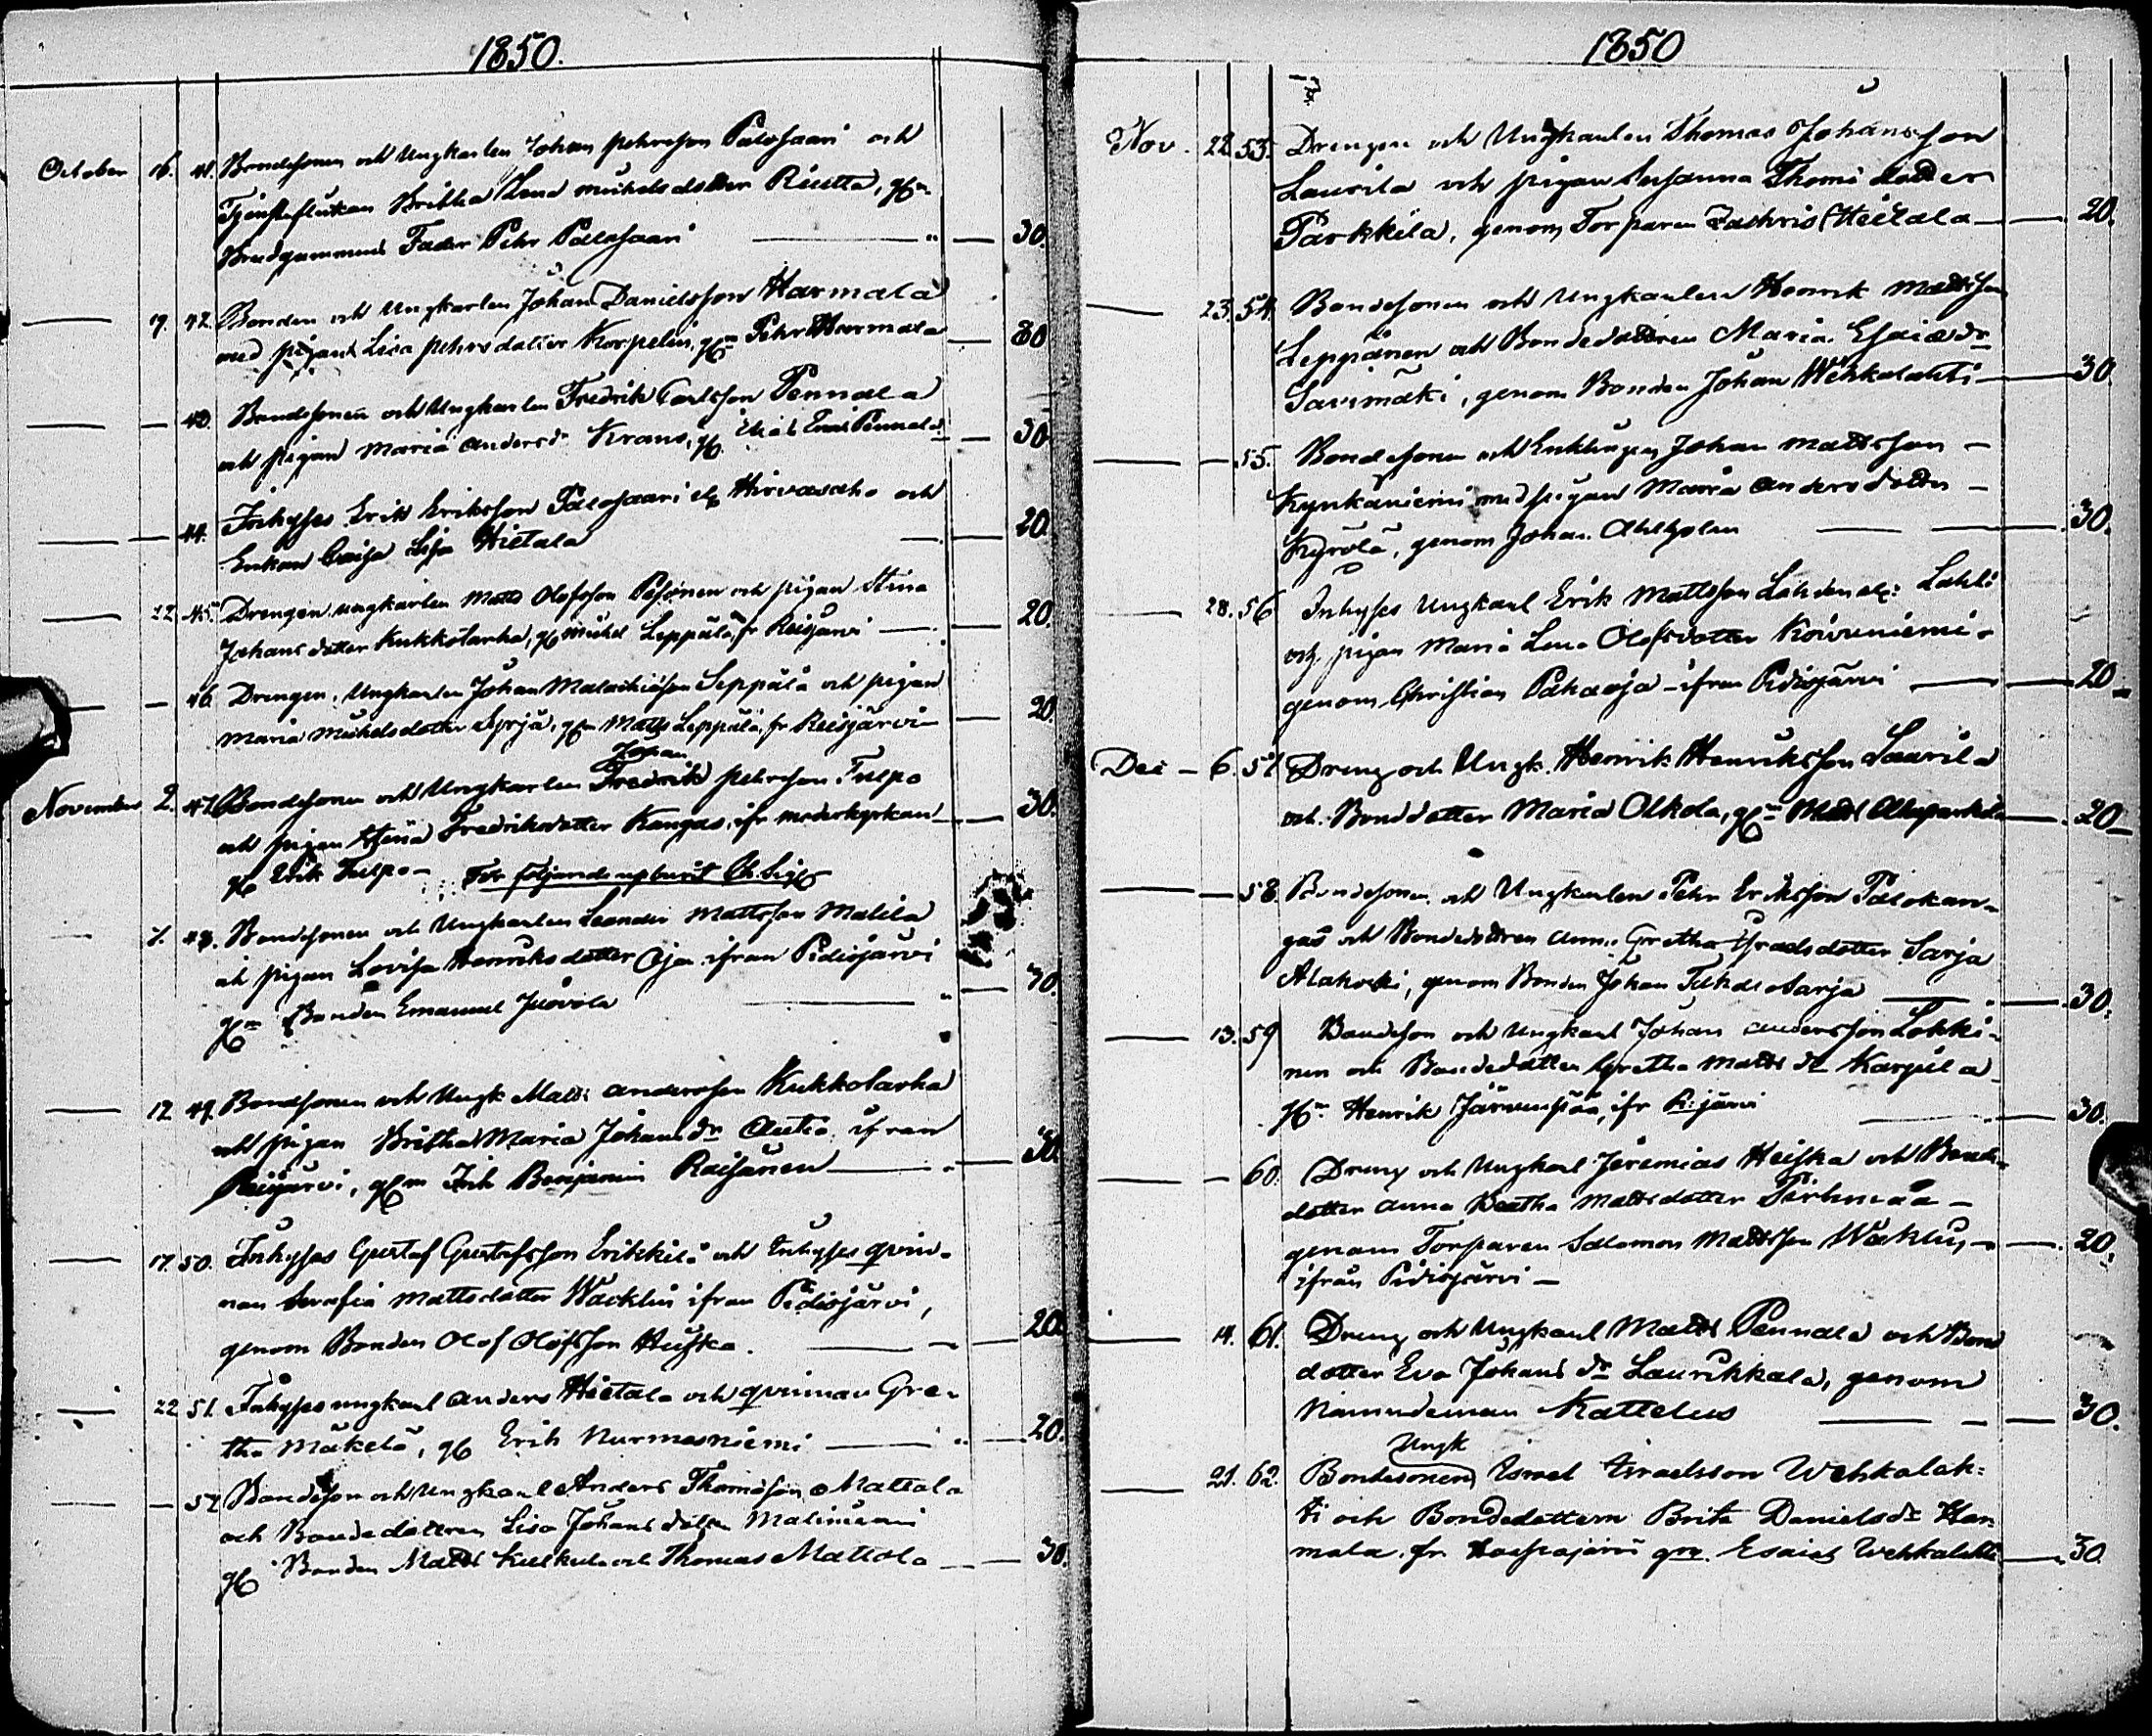 1850.
October 16. 41. Bondesonen och Ungkarlen Johan Pehrsson Palosaari och
Tjensteflickan Britha Lena Michelsdotter Riutta, gm
Brudgummens Fader Pehr Palosaari — " — 30.
— 19. 42. Bonden och Ungkarlen Johan Danielsson Harmala
med pigan Lisa Pehrsdotter Korpelin, gm Pehr Harmala — 30
— — 43. Bondesonen och Ungkarlen Fredrik Carlsson Pennala
och pigan Maria Andersdr Krans, g. Pennala — 30
— — 44. Inhyses Erik Eriksson Palosaari el. Hirvasaho och
Enkan Caisa Lisa Hietala — 20.
— 22. 45. Drengen ungkarlen Matts Olofsson Pesonen och pigan Stina
Johansdotter Kukkolanha, g Michel Leppälä, fr Reisjärvi — 20.
— — 46. Drengen, Ungkarlen Johan Malachiasson Seppälä och pigan
Maria Michelsdotter Syrjä, gm Matts Leppälä, fr Reisjärvi — 20.
Johan
November 2. 47. Bondesonen och Ungkarlen Fredrik Pehrsson Tulpo
och pigan Stina Fredriksdotter Kangas, ifr moderkyrkan — 30.
g Erik Tulpo — För följande upburit
— 7. 48. Bondesonen och Ungkarlen Leander Mattsson Malila
och pigan Lovisa Henriksdotter Oja ifran Pidisjärvi
gm Bonden Emanuel Junola — " — 30.
— 12 49. Bondsonen och Ungk Matts Andersson Kukkolanha
och pigan Britha Maria Johansdr Autio ifran
Reisjärvi, gm Inh Benjamin Raisänen — 30.
— 17. 50. Inhyses Gustaf Gustafsson Erikkilä och Inhyses qvin-
nan Serafia Mattsdotter Wacklin ifran Pidisjärvi,
genom Bonden Olof Olofsson Huska. — 20.
— 22 51. Inhyses ungkarl Anders Hietala och qvinnan Gre-
tha Mäkelä, g Erik Nurmesniemi — 20.
— — 52. Bondeson och Ungkarl Anders Thomasson Mattala
och Bondedottren Lisa Johansdotter Maliniemi
g Bonden Matts Kulkula och Thomas Mattola — 30.
1850
Nov. 22 53. Drengen och Ungkarlen Thomas Johansson
Laurila och pigan Susanna Thomædotter
Parkkila, genom Torparen Zachris Hietala — 20.
— 23. 54. Bondesonen och Ungkarlen Henrik Mattsson
Leppänen och Bondedottren Maria Esaiædr
Savimäki, genom Bonden Johan Wehkalahti — 30
— — 55. Bondesonen och Enklingen Johan Mattsson —
Kynkäniemi med pigan Maria Andersdotter —
Kyrölä, genom Johan Ahlholm — 30.
— 28. 56 Inhyses Ungkarl Erik Mattsson Lahden el: Lahti
och pigan Maria Lena Olofsdotter Koivuniemi
genom Christian Pahaoja — ifran Pidisjärvi — 20 —
Dec — 6. 57. Dreng och Ungk. Henrik Henriksson Laurila
och Bonddotter Maria Olkola, gm Matts Alaparkkila — 20 —
— — 58. Bondesonen och Ungkarlen Pehr Eriksson Palokan-
gas och Bondedottren Anna Gretha Israelsdotter Sarja
Alakoski, genom Bonden Johan Sarja — 30.
— 13. 59 Bondeson och Ungkarl Johan Andersson Lokki-
nen och Bondedotter Gretha Mattsdr Karjula
gm Henrik Järvenpää, ifr Pi:järvi — 30.
— — 60. Dreng och Ungkarl Jeremias Heiska och Bonde-
dotter Anna Beatha Mattsdotter Törhmää —
genom Torparen Salomon Mattsson Wacklin — 20.
ifrån Pidisjärvi —
— 14. 61. Dreng och Ungkarl Matts Pennala och Bond
dotter Eva Johansdr Laurikkala, genom
Nämndeman Kattelus — 30.
Ungk
— 21. 62. Bondesonen Israel Israelsson Wehkalah-
ti och Bondedottern Brita Danielsdr Har-
mala fr Haapajärvi gm. Esaias Wehkalahti — 30.